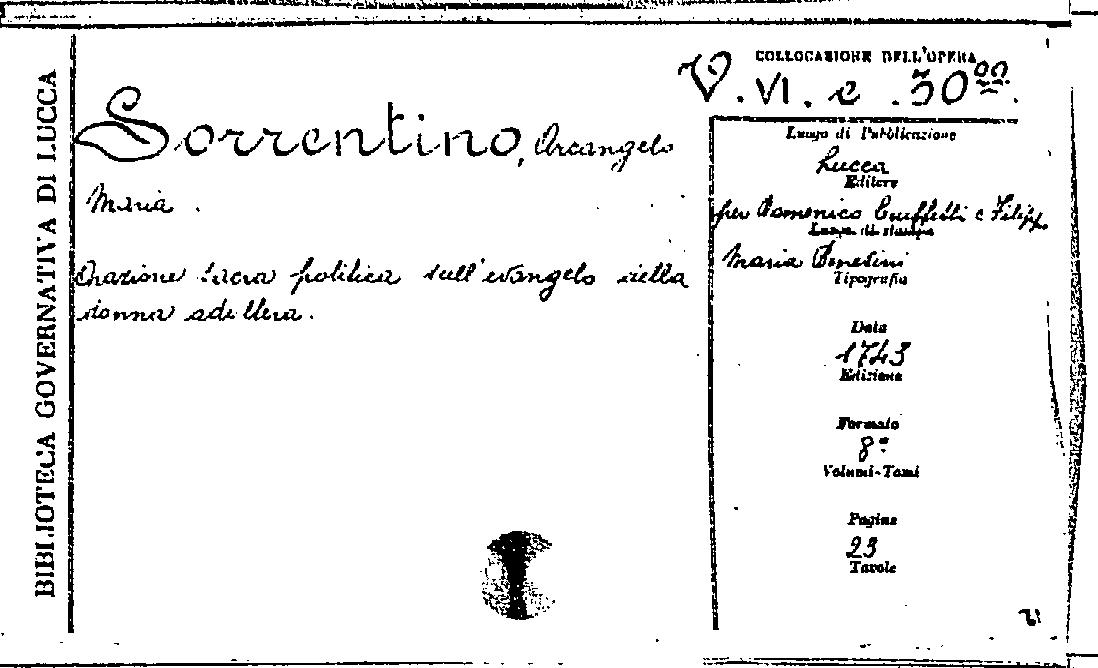 BIBLIOTECA GOVERNATIVA DI LUCCA
COLLOCAZIONE DELL'OPERA
V. VI. e. 30
Sorrentino, Arcangelo
Maria.
Orazione sacra politica sull'evangelo della
donna adultera.
Luogo di Pubblicazione
Lucca
Editore
per Domenico Ciuffetti e Filipp.
Luogo di stampa
Maria
Tipografia
Data
1743
Edizione
Formato
8º
Volumi-Tomi
Pagine
23
Tavole